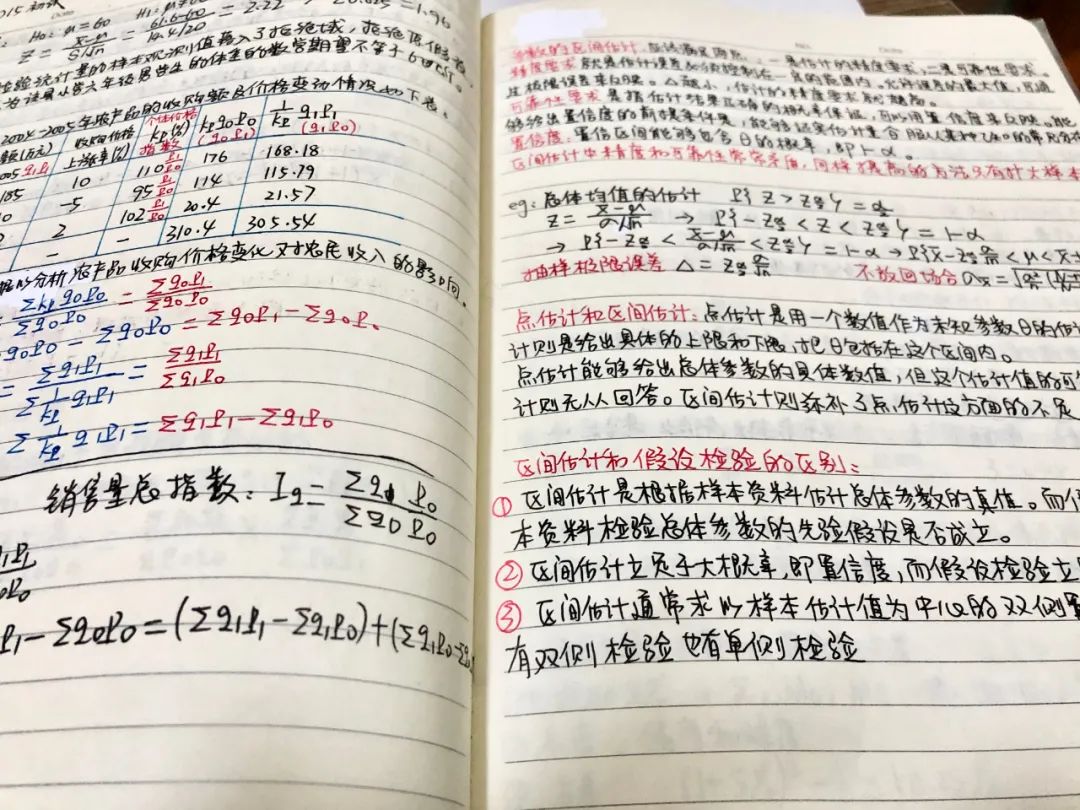 2015初试
H₀: μ=60 H₁: μ≠60
Z = (x̄-μ)/(S/√n) = (61.6-60)/(14.4/20) = 2.22 > = 1.96
检验统计量的样本观测值落入了拒绝域,拒绝原假设,
六年级男生的体重的数学期望不等于60公斤。
年农产品的收购额及价格变动情况如下表。
额(万元) 收购价格上涨率(%) 个体价格指数 kp(%) kpq₀p₀ (q₀p₁) 1/kp q₁p₁ (q₁p₀)
185 10 110 p₁/p₀ 176 168.18
-5 95 p₁/p₀ 114 115.79
2 102 p₁/p₀ 20.4 21.57
- - 310.4 305.54
分析农产品收购价格变化对农民收入的影响。
Σkp q₀p₀/Σq₀p₀ = Σq₀p₁/Σq₀p₀
q₀p₀ - Σq₀p₀ = Σq₀p₁ - Σq₀p₀
= Σq₁p₁/Σ(1/kp)q₁p₁ = Σq₁p₁/Σq₁p₀
Σ(1/kp)q₁p₁ = Σq₁p₁ - Σq₁p₀
销售量总指数: Iq = Σq₁p₀/Σq₀p₀
p₁ - Σq₀p₀ = (Σq₁p₁ - Σq₁p₀) + (Σq₁p₀ - Σq₀
参数的区间估计,应该满足两点:一是估计的精度要求,二是可靠性要求。
精度要求就是估计误差必须控制在一定的范围内。允许误差的最大值,可通
过极限误差来反映。△越小,估计的精度要求越高
可靠性要求是指估计结果正确的概率保证,可以用置信度来反映。
置信度:置信区间能够包含θ的概率,即1-α。
区间估计中精度和可靠性常常矛盾,同样提高的方法只有扩大样本
eg:总体均值的估计 P{Z>Zα/2}=α/2
Z = (x̄-μ)/(σ/√n) → P{-Zα/2<Z<Zα/2}=1-α
→ P{-Zα/2 < (x̄-μ)/(σ/√n) < Zα/2}=1-α → P{x̄-Zα/2 σ/√n < μ < x̄+
抽样极限误差 △=Zα/2 σ/√n 不放回场合
点估计和区间估计:点估计是用一个数值作为未知参数θ的估计
计则是给出具体的上限和下限,把θ包括在这个区间内。
点估计能够给出总体参数的具体数值,但这个估计值的可
计则无从回答。区间估计则弥补了点估计这方面的不足
区间估计和假设检验的区别:
① 区间估计是根据样本资料估计总体参数的真值。而
本资料检验总体参数的先验假设是否成立。
② 区间估计立足于大概率,即置信度,而假设检验立
③ 区间估计通常求以样本估计值为中心的双侧置
有双侧检验也有单侧检验